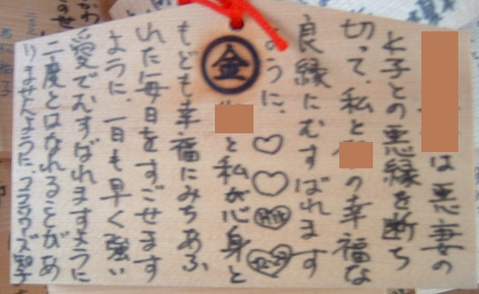 は悪妻の
K子との悪縁を断ち
切って、私との幸福な
良縁にむすばれます
ように、
金
と私が心身と
もども幸福にみちあふ
れた毎日をすごせます
ように、一日も早く強い
愛でむすばれますように
二度とはなれることがあ
りませんように、